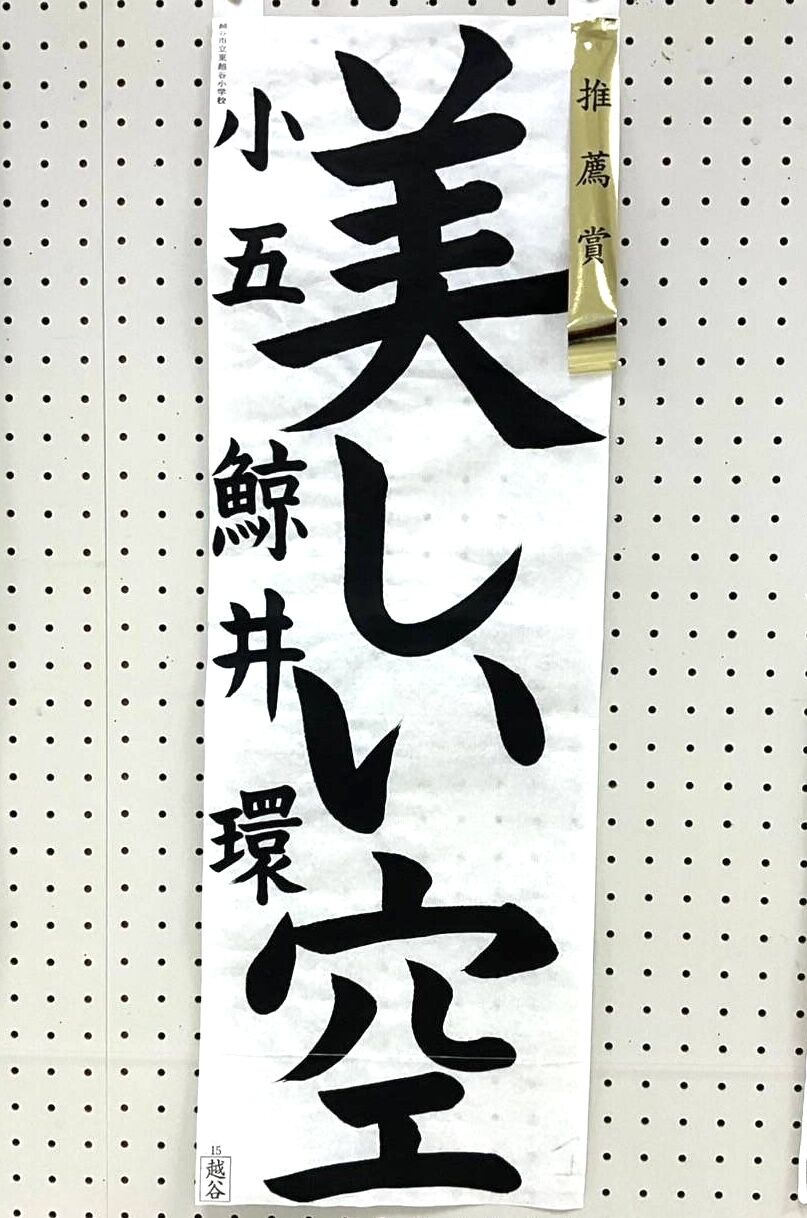 推薦賞
美しい空
越谷市立東越谷小学校
小五 鯨井環
15
越谷